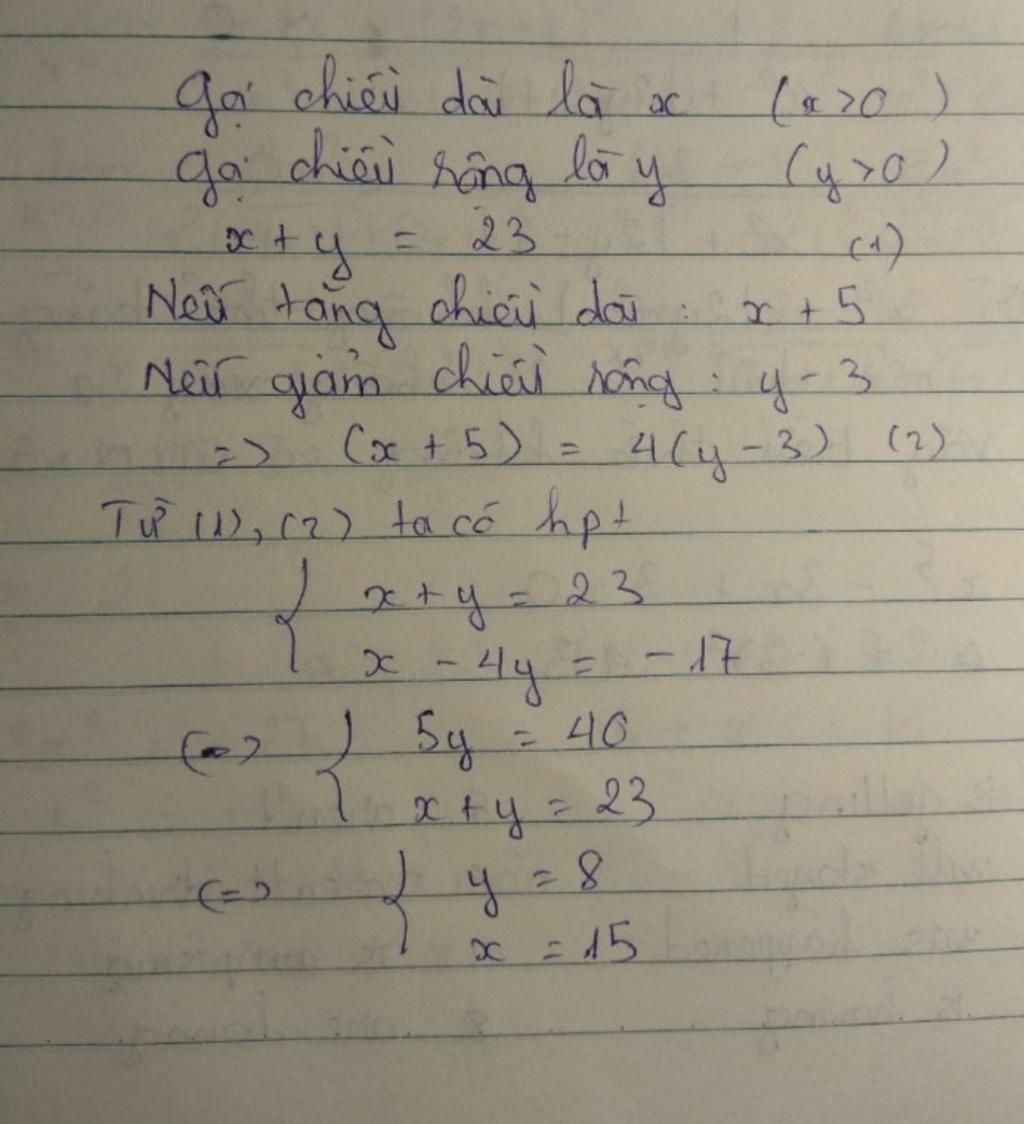 Gọi chiều dài là x (x>0)
Gọi chiều rộng là y (y>0)
x + y = 23 (1)
Nếu tăng chiều dài : x + 5
Nếu giảm chiều rộng : y - 3
=> (x + 5) = 4(y - 3) (2)
Từ (1), (2) ta có hpt
{ x + y = 23
x - 4y = - 17
(=> { 5y = 40
x + y = 23
(=> { y = 8
x = 15